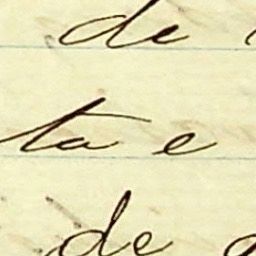 de
ta e
de